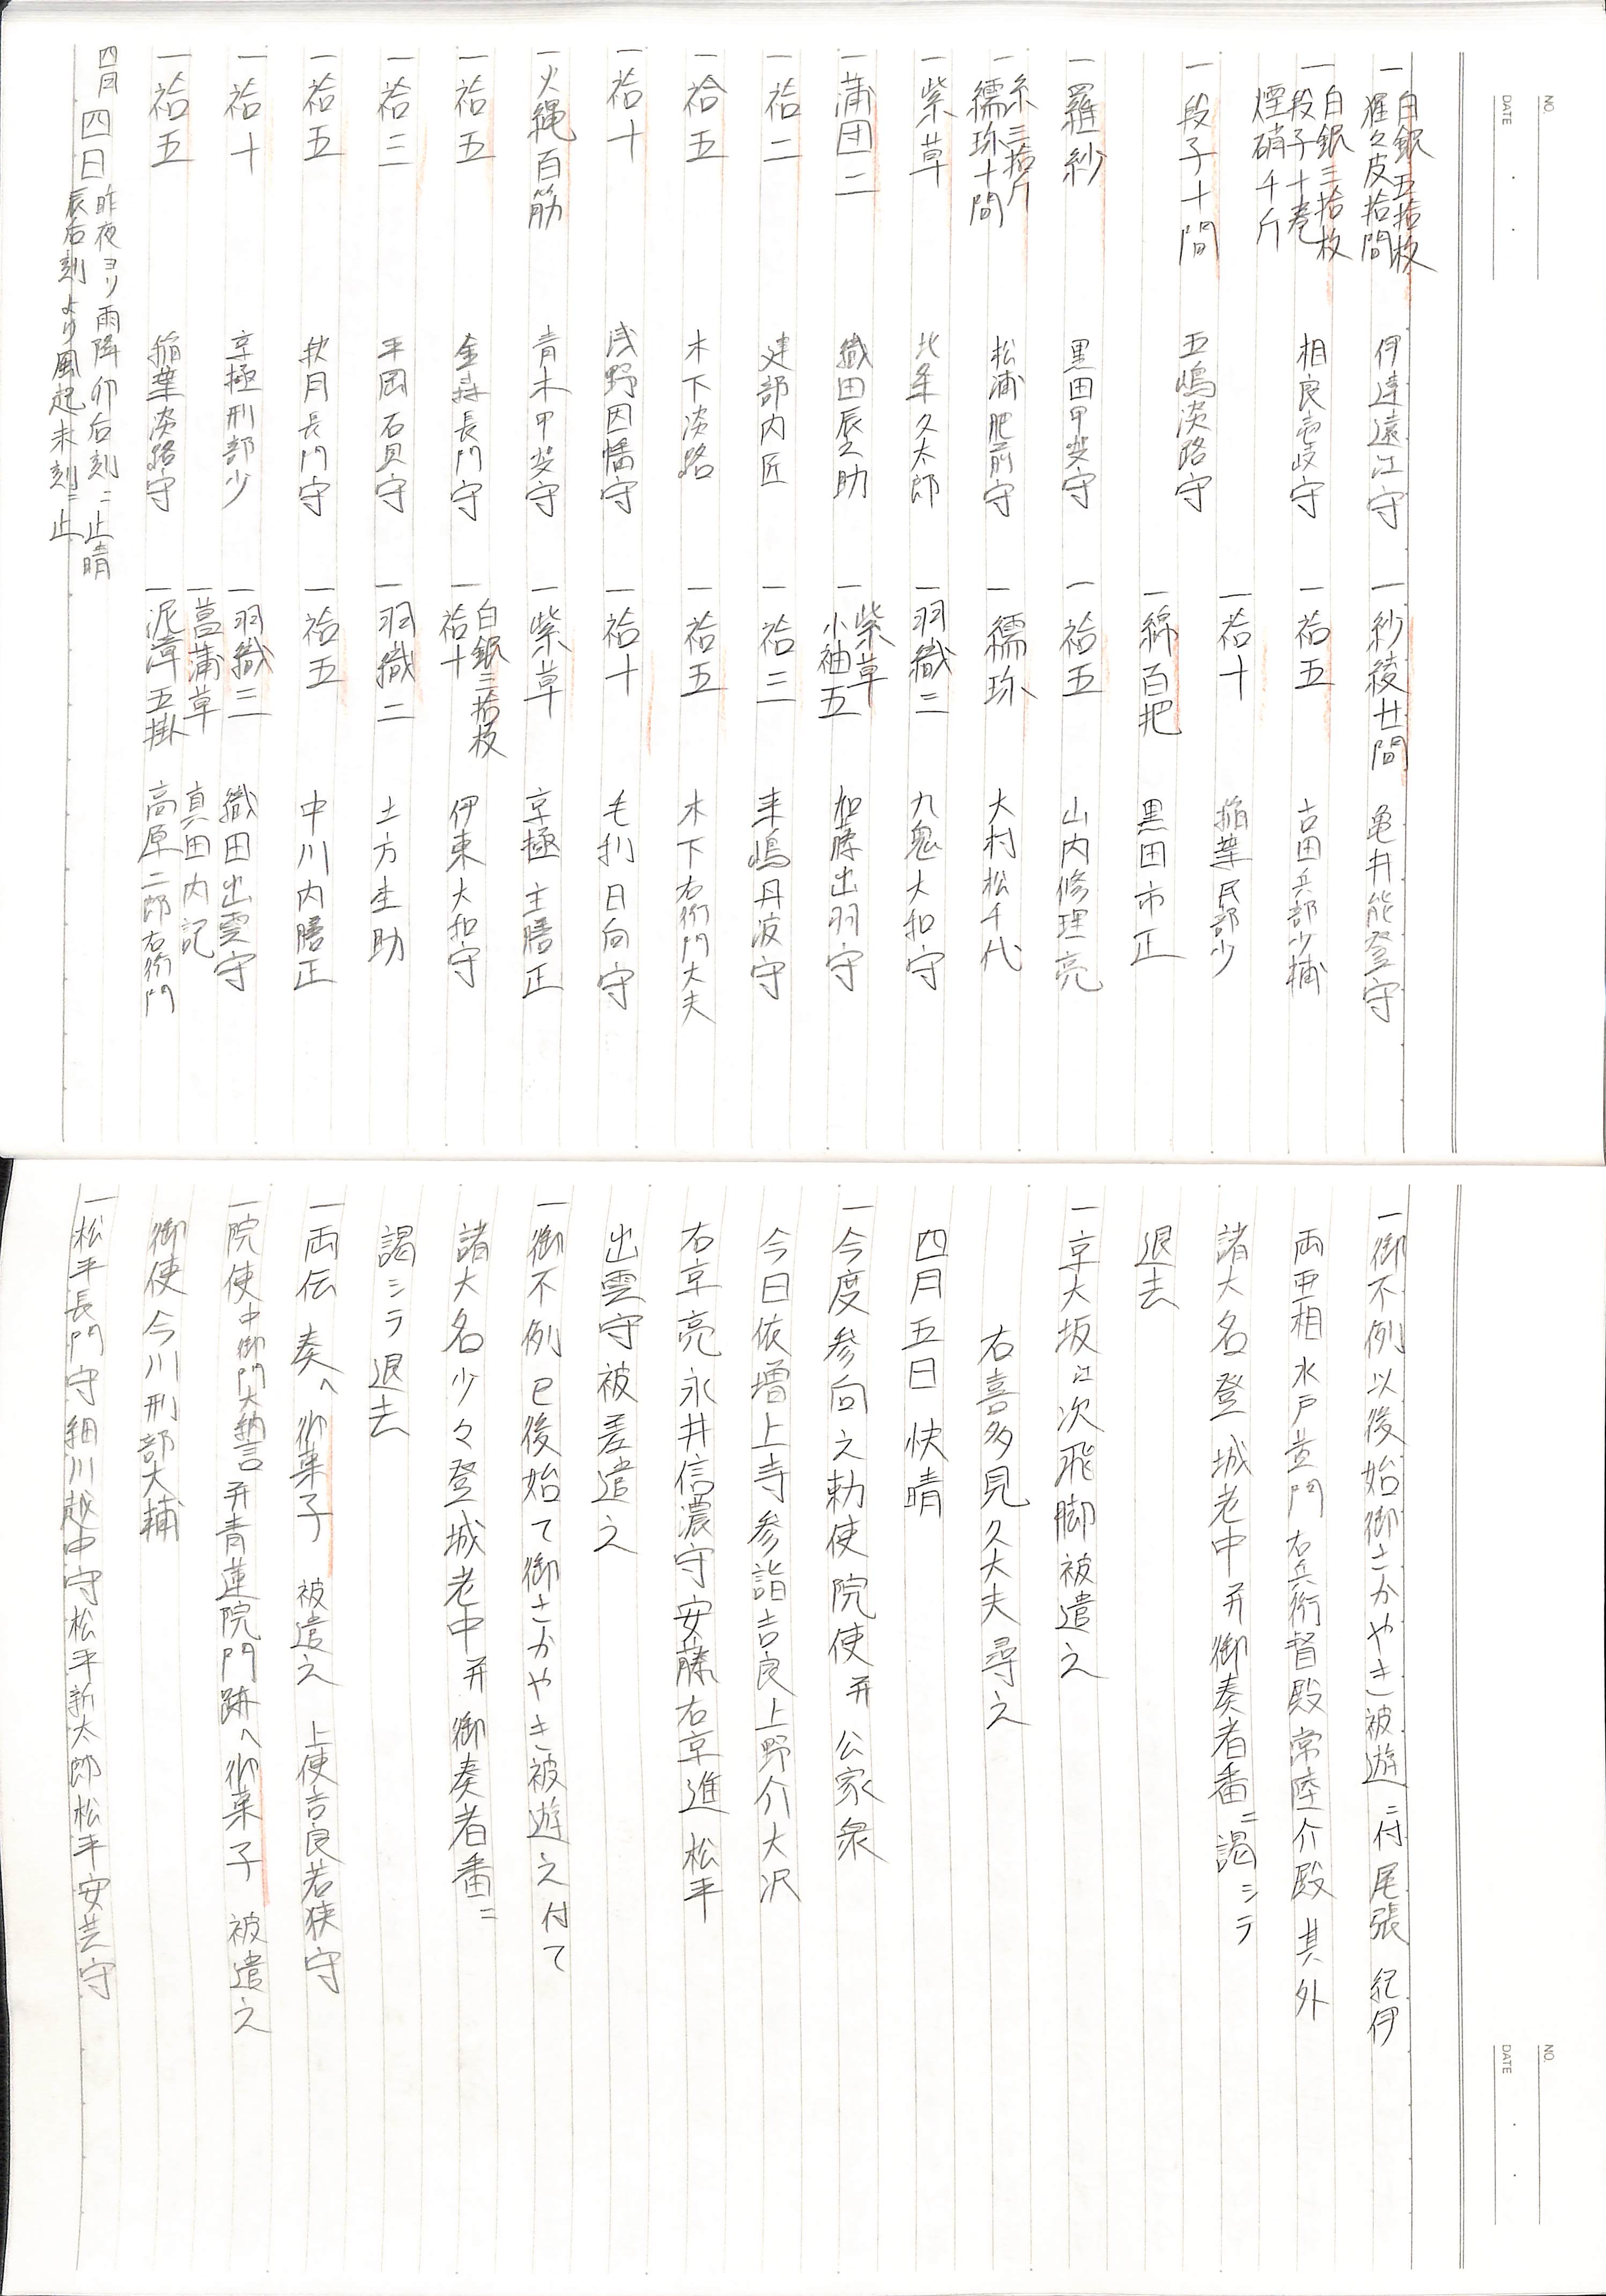 NO.
DATE
一 白銀五拾枚
猩々皮拾間 伊達遠江守
一 紗綾廿間 亀井能登守
一 白銀三拾枚
段子十巻
煙硝千斤 相良壱岐守
一 袷五 古田兵部少輔
一 段子十間 五嶋淡路守
一 袷十 稲葉民部少
一 綿百把 黒田市正
一 羅紗 黒田甲斐守
一 袷五 山内修理亮
一 糸三拾斤
繻珍十間 松浦肥前守
一 繻珍 大村松千代
一 紫草 北条久太郎
一 羽織三 九鬼大和守
一 蒲団二 織田辰之助
一 紫草
小袖五 加藤出羽守
一 袷二 建部内匠
一 袷三 来嶋丹波守
一 袷五 木下淡路
一 袷五 木下右衛門大夫
一 袷十 浅野因幡守
一 袷十 毛利日向守
一 火縄百筋 青木甲斐守
一 紫草 京極主膳正
一 袷五 金森長門守
一 白銀三拾枚
袷十 伊東大和守
一 袷三 平岡石見守
一 羽織二 土方杢助
一 袷五 秋月長門守
一 袷五 中川内膳正
一 袷十 京極刑部少
一 羽織三 織田出雲守
一 菖蒲草 真田内記
一 袷五 稲葉淡路守
一 泥障五掛 高原二郎右衛門
四月四日 昨夜ヨリ雨降卯后刻ニ止晴
辰后刻より風起未刻ニ止
NO.
DATE
一御不例以後始御さかやき被遊ニ付尾張 紀伊
両亜相水戸黄門右兵衛督殿常陸介殿其外
諸大名登 城老中并御奏者番ニ謁シテ
退去
一京大坂江次飛脚被遣之
右喜多見久大夫尋之
四月五日 快晴
一今度参向之勅使院使并公家衆
今日依増上寺参詣吉良上野介大沢
右京亮永井信濃守安藤右京進 松平
出雲守被差遣之
一御不例已後始て御さかやき被遊之付て
諸大名少々登城老中并御奏者番ニ
謁シテ退去
一両伝 奏へ御菓子 被遣之 上使吉良若狭守
一院使中御門大納言并青蓮院門跡へ御菓子 被遣之
御使今川刑部大輔
一松平長門守細川越中守松平新太郎松平安芸守